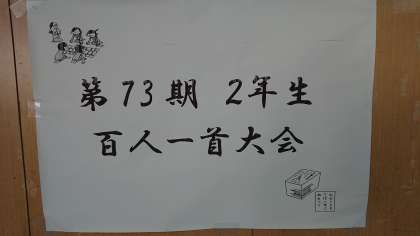 第73期 2年生
百人一首大会